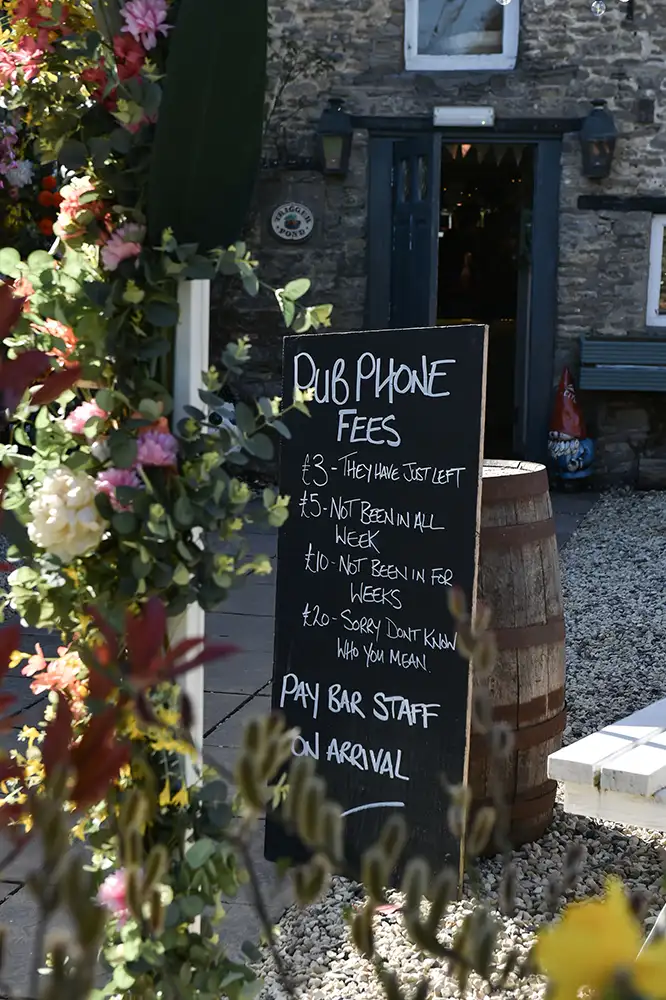 TRIGGER
POND
PUB PHONE
FEES
£3 - THEY HAVE JUST LEFT
£5 - NOT BEEN IN ALL
WEEK
£10 - NOT BEEN IN FOR
WEEKS
£20 - SORRY DONT KNOW
WHO YOU MEAN.
PAY BAR STAFF
ON ARRIVAL